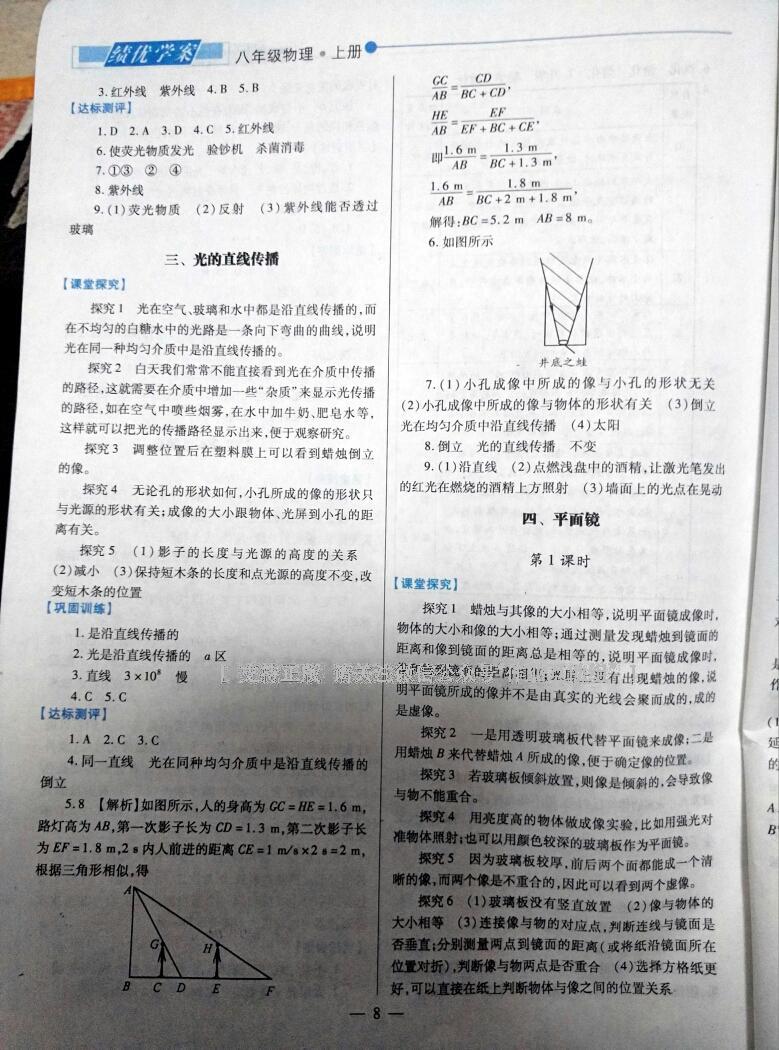 绩优学案 八年级物理·上册
3.红外线 紫外线 4.B 5.B
【达标测评】
1.D 2.A 3.D 4.C 5.红外线
6.使荧光物质发光 验钞机 杀菌消毒
7.①③ ② ④
8.紫外线
9.(1)荧光物质 (2)反射 (3)紫外线能否透过
玻璃
三、光的直线传播
【课堂探究】
探究1 光在空气、玻璃和水中都是沿直线传播的,而
在不均匀的白糖水中的光路是一条向下弯曲的曲线,说明
光在同一种均匀介质中是沿直线传播的。
探究2 白天我们常常不能直接看到光在介质中传播
的路径,这就需要在介质中增加一些“杂质”来显示光传播
的路径,如在空气中喷些烟雾,在水中加牛奶、肥皂水等,
这样就可以把光的传播路径显示出来,便于观察研究。
探究3 调整位置后在塑料膜上可以看到蜡烛倒立
的像。
探究4 无论孔的形状如何,小孔所成的像的形状只
与光源的形状有关;成像的大小跟物体、光屏到小孔的距
离有关。
探究5 (1)影子的长度与光源的高度的关系
(2)减小 (3)保持短木条的长度和点光源的高度不变,改
变短木条的位置
【巩固训练】
1.是沿直线传播的
2.光是沿直线传播的 a区
3.直线 3×10⁸ 慢
4.C 5.C
【达标测评】
1.A 2.C 3.C
4.同一直线 光在同种均匀介质中是沿直线传播的
倒立
5.8 【解析】如图所示,人的身高为GC=HE=1.6 m,
路灯高为AB,第一次影子长为CD=1.3 m,第二次影子长
为EF=1.8 m,2 s内人前进的距离CE=1 m/s×2 s=2 m,
根据三角形相似,得
A
G H
B C D E F
GC/AB=CD/(BC+CD),
HE/AB=EF/(EF+BC+CE),
即1.6 m/AB=1.3 m/(BC+1.3 m),
1.6 m/AB=1.8 m/(BC+2 m+1.8 m),
解得:BC=5.2 m AB=8 m。
6.如图所示
井底之蛙
7.(1)小孔成像中所成的像与小孔的形状无关
(2)小孔成像中所成的像与物体的形状有关 (3)倒立
光在均匀介质中沿直线传播 (4)太阳
8.倒立 光的直线传播 不变
9.(1)沿直线 (2)点燃浅盘中的酒精,让激光笔发出
的红光在燃烧的酒精上方照射 (3)墙面上的光点在晃动
四、平面镜
第1课时
【课堂探究】
探究1 蜡烛与其像的大小相等,说明平面镜成像时,
物体的大小和像的大小相等;通过测量发现蜡烛到镜面的
距离和像到镜面的距离总是相等的,说明平面镜成像时,
有出现蜡烛的像,说
明平面镜所成的像并不是由真实的光线会聚而成的,成的
是虚像。
探究2 一是用透明玻璃板代替平面镜来成像;二是
用蜡烛B来代替蜡烛A所成的像,便于确定像的位置。
探究3 若玻璃板倾斜放置,则像是倾斜的,会导致像
与物不能重合。
探究4 用亮度高的物体做成像实验,比如用强光对
准物体照射;也可以用颜色较深的玻璃板作为平面镜。
探究5 因为玻璃板较厚,前后两个面都能成一个清
晰的像,而两个像是不重合的,因此可以看到两个虚像。
探究6 (1)玻璃板没有竖直放置 (2)像与物体的
大小相等 (3)连接像与物的对应点,判断连线与镜面是
否垂直;分别测量两点到镜面的距离(或将纸沿镜面所在
位置对折),判断像与物两点是否重合 (4)选择方格纸更
好,可以直接在纸上判断物体与像之间的位置关系
— 8 —